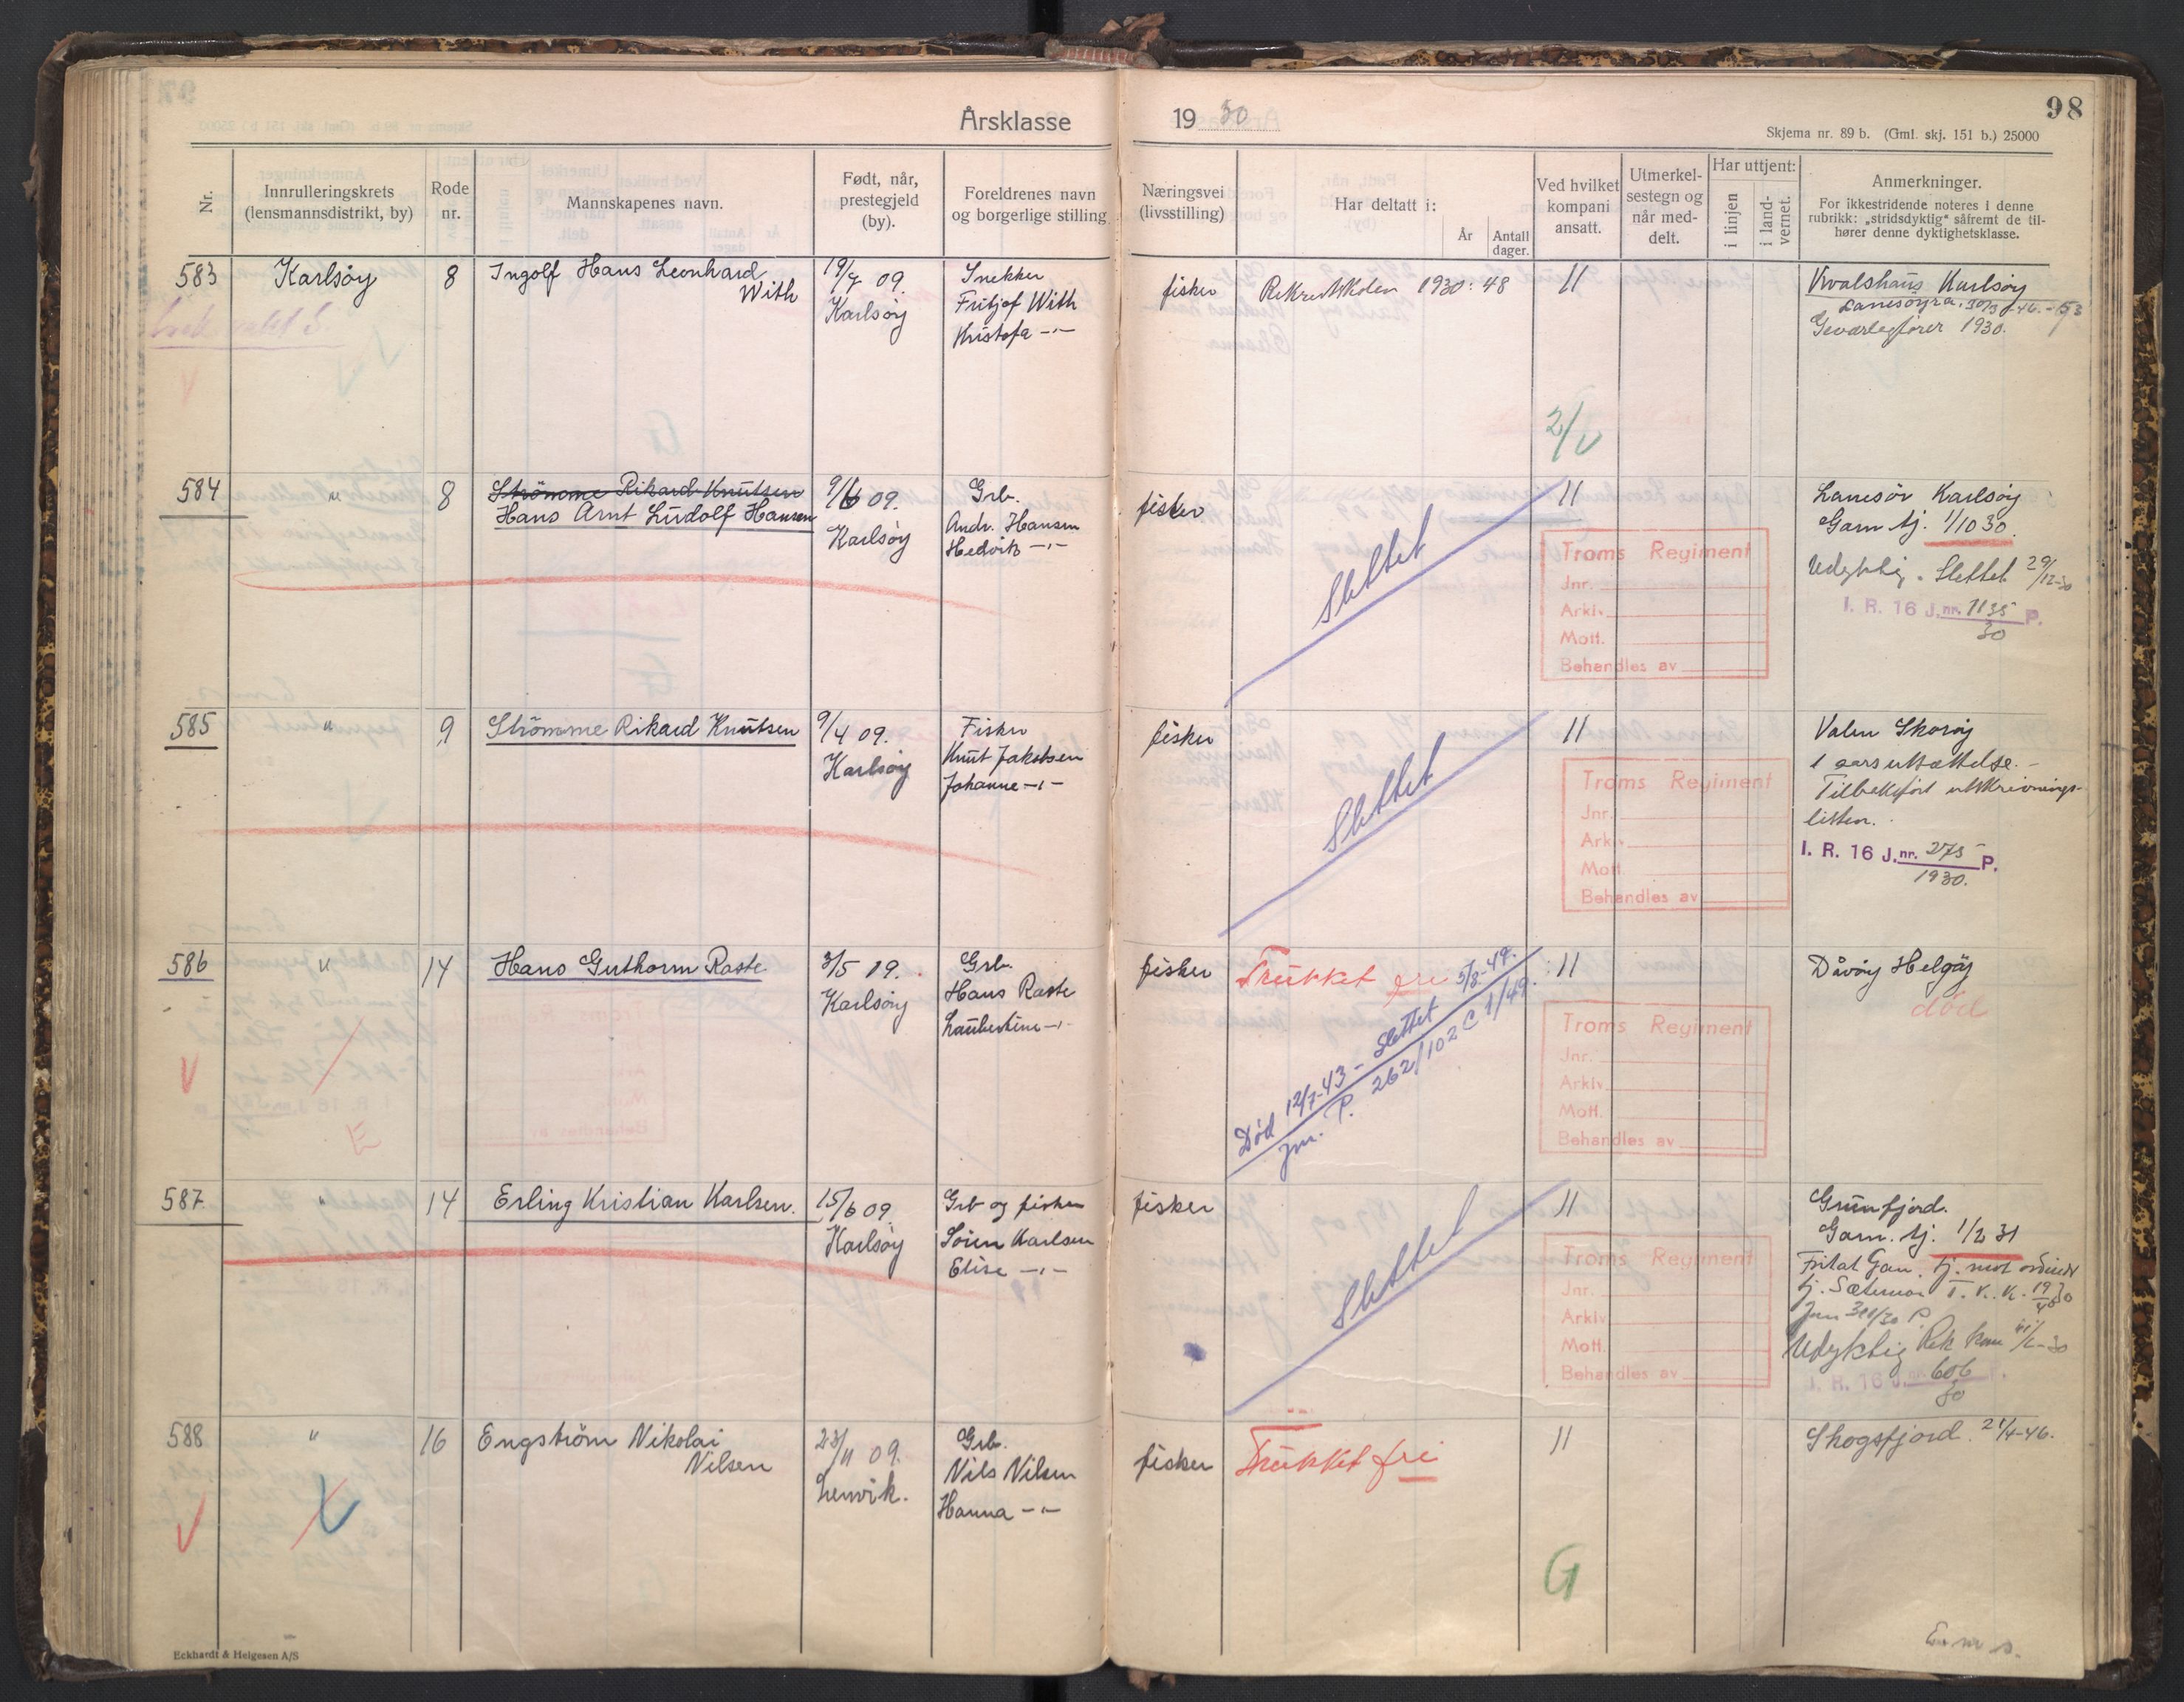 Årsklasse 1930
98
Skjema nr. 89 b. (Gml. skj. 151 b.) 25000
Nr.
Innrulleringskrets
(lensmannsdistrikt, by)
Rode
nr.
Mannskapenes navn.
Født, når,
prestegjeld
(by).
Foreldrenes navn
og borgerlige stilling
Næringsvei
(livsstilling)
Har deltatt i:
År
Antall
dager.
Ved hvilket
kompani
ansatt.
Utmerkel-
sestegn og
når med-
delt.
Har uttjent:
i linjen
i land-
vernet.
Anmerkninger.
For ikkestridende noteres i denne
rubrikk: „stridsdyktig“ såfremt de til-
hører denne dyktighetsklasse.
583
Karlsøy
8
Ingolf Hans Leonhard
With
19/7 09.
Karlsøy
Snekker
Fritjof With
Kristofa -"-
fisker
Rekruttskolen 1930: 48
11
Karlsøy
Geværlagfører 1930.
2/V
584
"
8
Strömme Rikard Knutsen
Hans Arnt Ludolf Hansen
9/6 09.
Karlsøy
Grb.
Andr. Hansen
Hedvik -"-
fisker
Slettet
11
Troms Regiment
Jnr.
Arkiv
Mott.
Behandles av
Lanesör Karlsøy
Garn tj. 1/10 30.
Udyktig. Slettet 29/12-30
I. R. 16 J.nr. 1135 P.
30
585
"
9
Strömme Rikard Knutsen
9/4 09.
Karlsøy
Fisker
Knut Jakobsen
Johanne -"-
fisker
Slettet
11
Troms Regiment
Jnr.
Arkiv
Mott.
Behandles av
Valen Skorøy
1 aars utsettelse. -
Tilbakeført utskrivnings-
listen.
I. R. 16 J.nr. 275 P.
1930.
586
"
14
Hans Guthorm Raste
3/5 19.
Karlsøy
Grb.
Hans Raste
Laubertine -"-
fisker
Trukket fri 5/8-49.
Død 12/7-43 - Slettet
Jnr. P. 262/102 C 1/49.
11
Troms Regiment
Jnr.
Arkiv
Mott.
Behandles av
Dåvøy Helgøy
død
V
E
587
"
14
Erling Kristian Karlsen.
15/6 09
Karlsøy
Grb og fisker
Sören Karlsen
Elise -"-
fisker
Slettet
11
Troms Regiment
Jnr.
Arkiv
Mott.
Behandles av
Grunfjord.
Garn. tj. 1/2 31
Fritat Gan. tj. mot
Udyktig
I. R. 16 J.nr. 606 P.
30
588
"
16
Engström Nikolai
Nilsen
23/11 09.
Lenvik.
Grb.
Nils Nilsen
Hanna -"-
fisker
Trukket fri
11
Skogsfjord. 24/4-46.
V
G
Eckhardt & Helgesen A/S